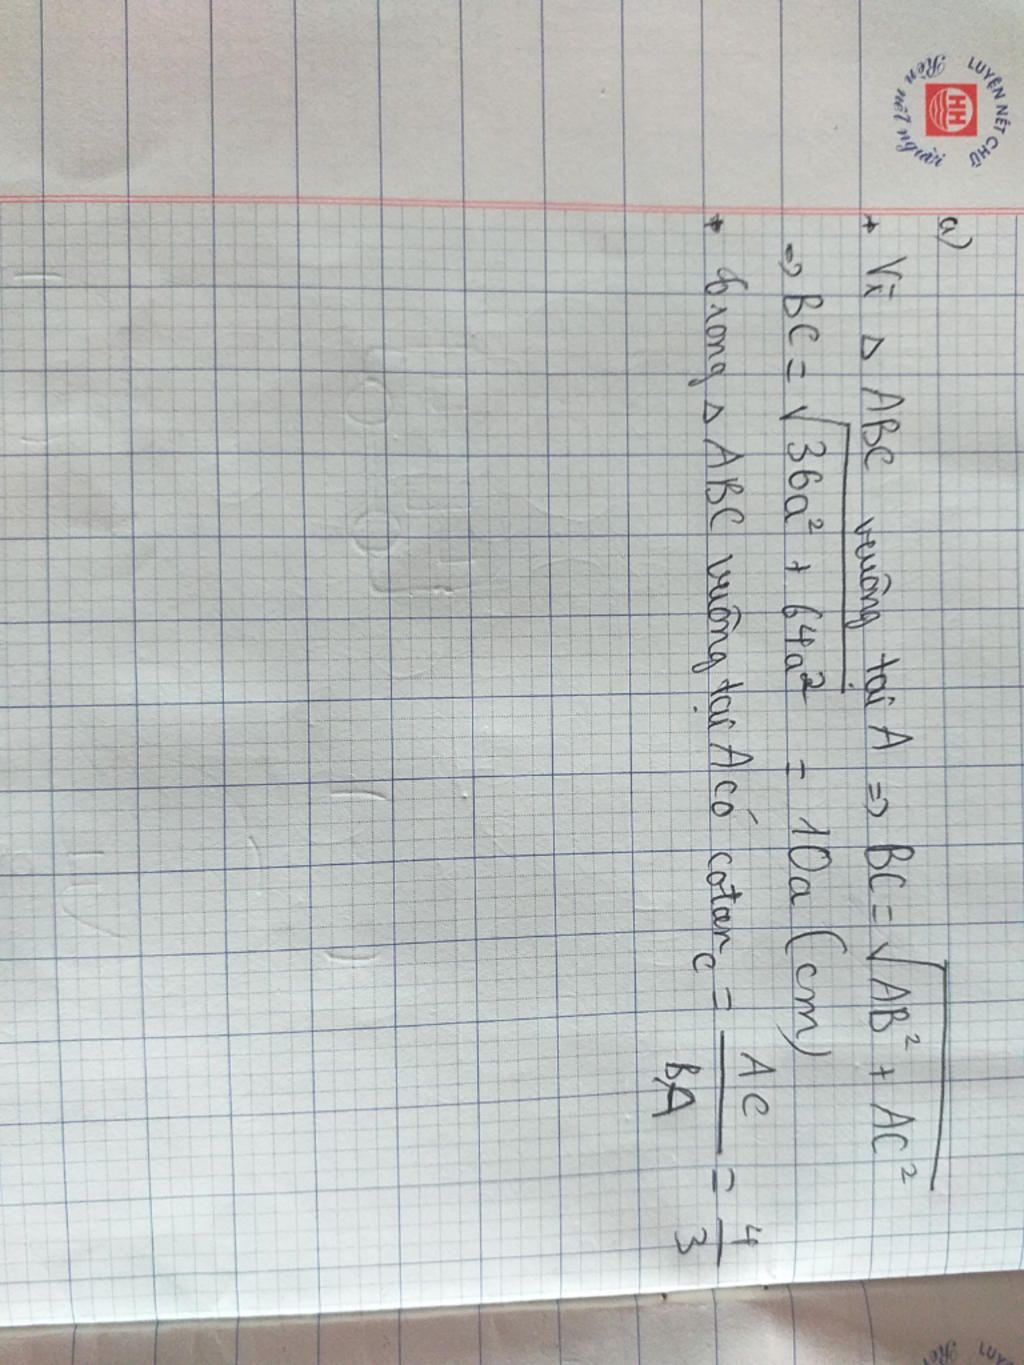 LUYỆN NÉT CHỮ
Rèn nết người
HH
a)
+ Vì △ ABC vuông tại A => BC = √AB² + AC²
=> BC = √36a² + 64a² = 10a (cm)
+ trong △ ABC vuông tại A có cotan C = AC/BA = 4/3